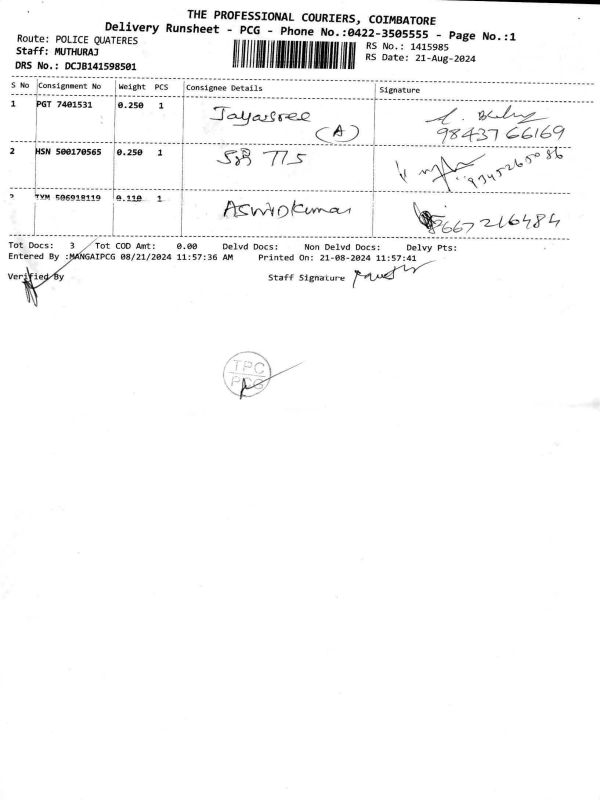 THE PROFESSIONAL COURIERS, COIMBATORE
Delivery Runsheet - PCG - Phone No.:0422-3505555 - Page No.:1
Route: POLICE QUATERES
RS No.: 1415985
Staff: MUTHURAJ
RS Date: 21-Aug-2024
DRS No.: DCJB141598501
S No Consignment No Weight PCS Consignee Details Signature
1 PGT 7401531 0.250 1 Jayasree
(A) 98437 66169
2 HSN 500170565 0.250 1
TYM 506918119 0.110 1 Aswidkumar
8667 216484
Tot Docs: 3 Tot COD Amt: 0.00 Delvd Docs: Non Delvd Docs: Delvy Pts:
Entered By :MANGAIPCG 08/21/2024 11:57:36 AM Printed On: 21-08-2024 11:57:41
Verified By Staff Signature
TPC
PCG